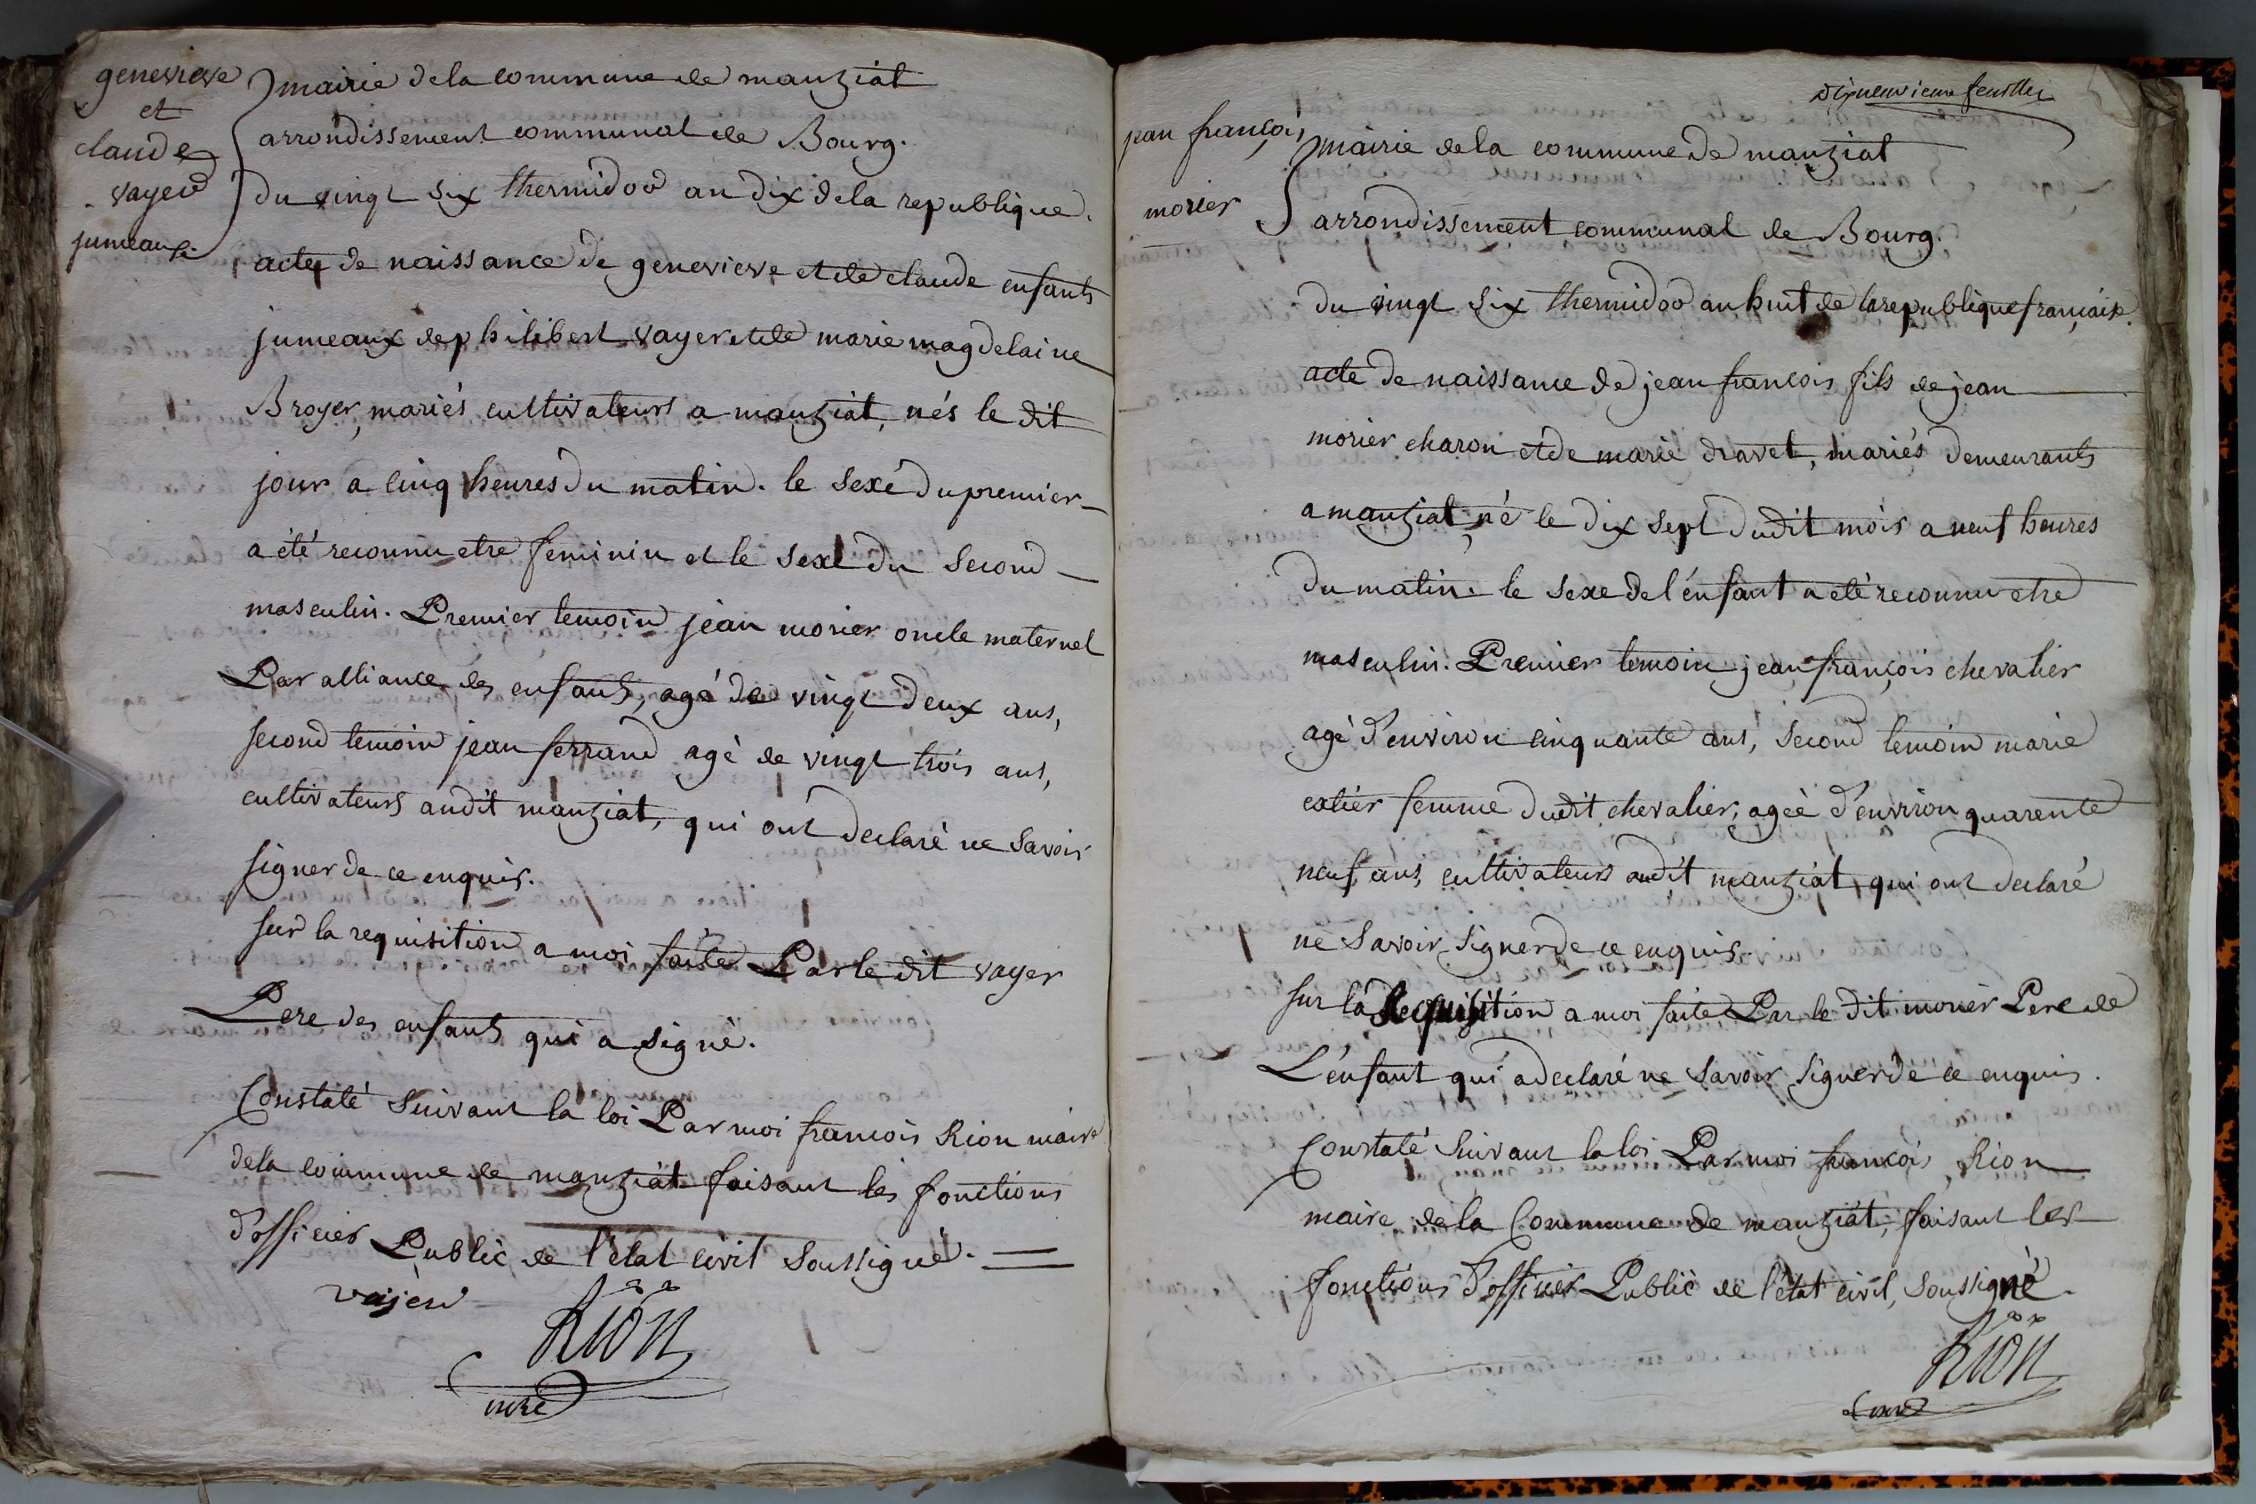 genevieve
et
claude
vayer
jumeaux.
mairie de la commune de manziat
arrondissement communal de Bourg.
du vingt six thermidor an dix de la republique.
acte de naissance de genevieve et de claude enfants
jumeaux de philibert vayer et de marie magdelaine
Broyer, mariés cultivateurs a manziat, nés le dit
jour a cinq heures du matin. le sexe du premier
a été reconnu etre feminin et le sexe du second
masculin. Premier temoin jean morier oncle maternel
Par alliance des enfants, agé de vingt deux ans,
second temoin jean ferrand agé de vingt trois ans,
cultivateurs audit manziat, qui ont declaré ne savoir
signer de ce enquis.
sur la requisition a moi faite Par le dit vayer
Pere des enfants qui a signé.
Constaté suivant la loi Par moi françois Rion maire
de la commune de manziat faisant les fonctions
d'officier Public de l'état civil soussigné.
vajer
Rion
mre
dixneuvieme feuillet
jean françois
morier
mairie de la commune de manziat
arrondissement communal de Bourg.
du vingt six thermidor an huit de la republique française.
acte de naissance de jean francois fils de jean
morier charon et de marie dravet, mariés demeurants
a manziat, né le dix sept dudit mois a neuf heures
du matin. le sexe de l'enfant a été reconnu etre
masculin. Premier temoin jean françois chevalier
agé d'environ cinquante ans, second temoin marie
catier femme dudit chevalier, ageé d'environ quarente
neuf ans, cultivateurs audit manziat, qui ont declaré
ne savoir signer de ce enquis.
sur la Requisition a moi faite Par le dit morier Pere de
L'enfant qui a declaré ne savoir signer de ce enquis.
Constaté suivant la loi Par moi françois Rion
maire de la Commune de manziat, faisant les
fonctions d'officier Public de l'état civil, soussigné.
Rion